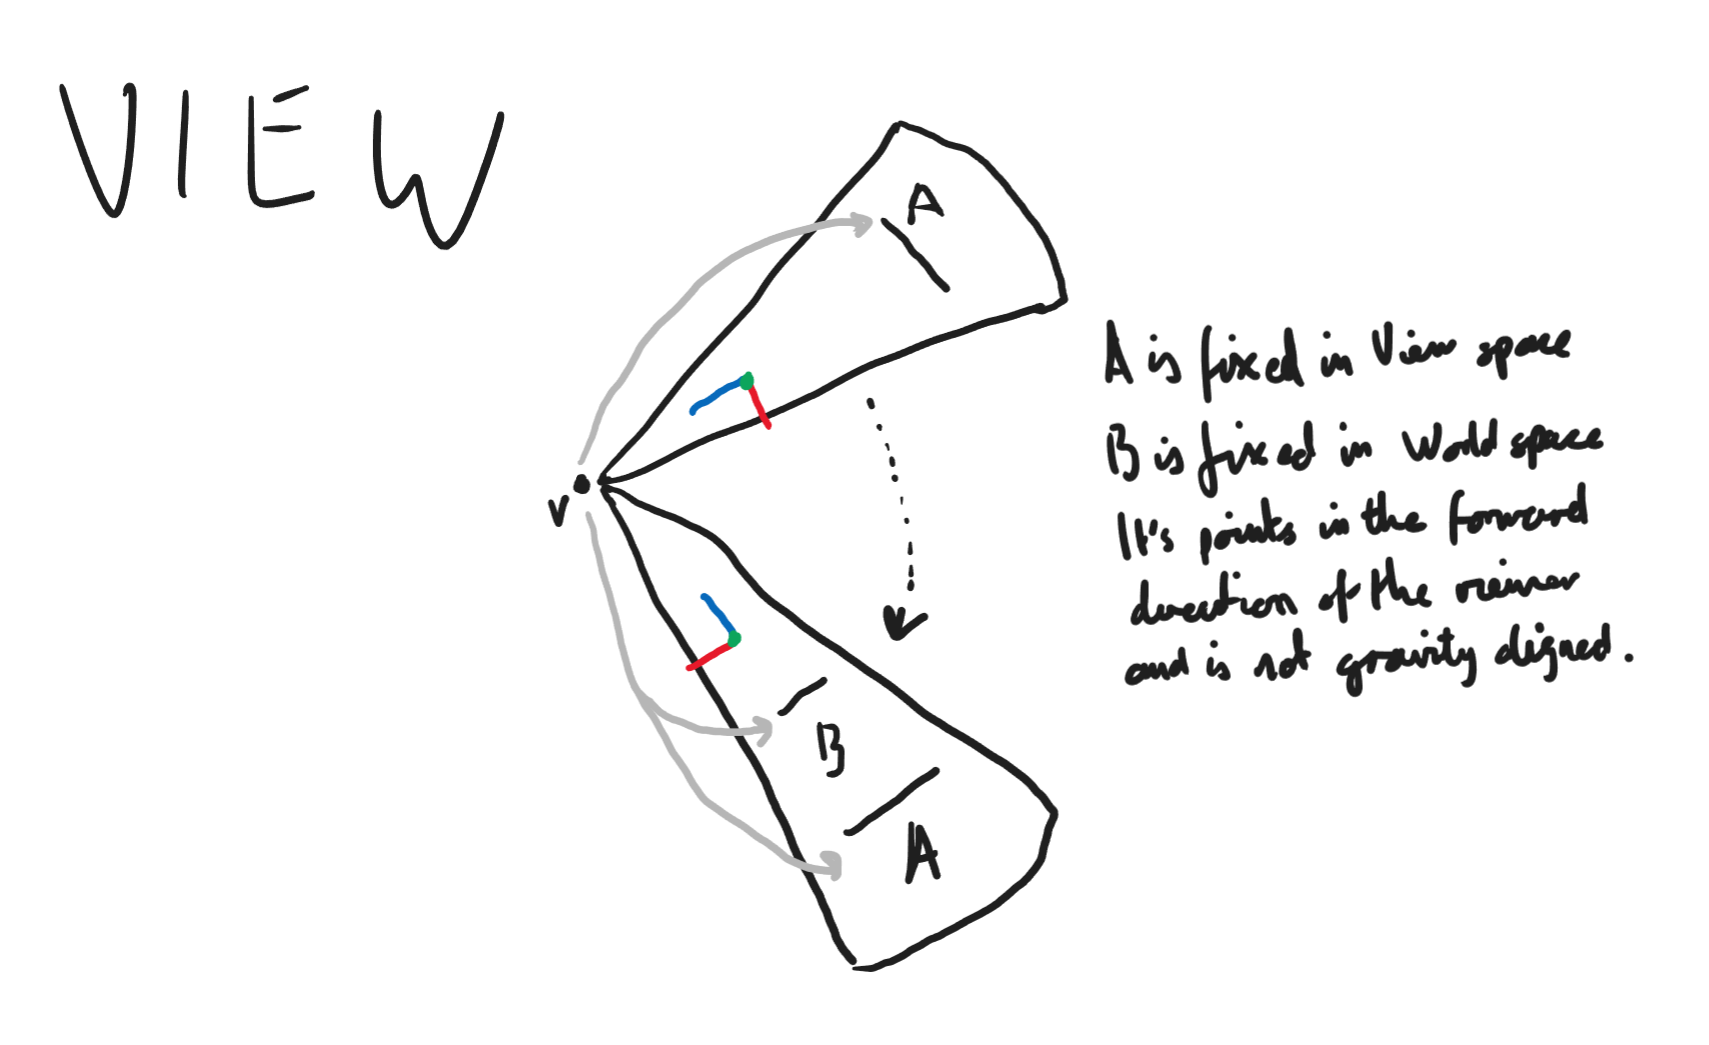 VIEW
A
V
B
A
A is fixed in View space
B is fixed in World space
It's points in the forward
direction of the viewer
and is not gravity aligned.